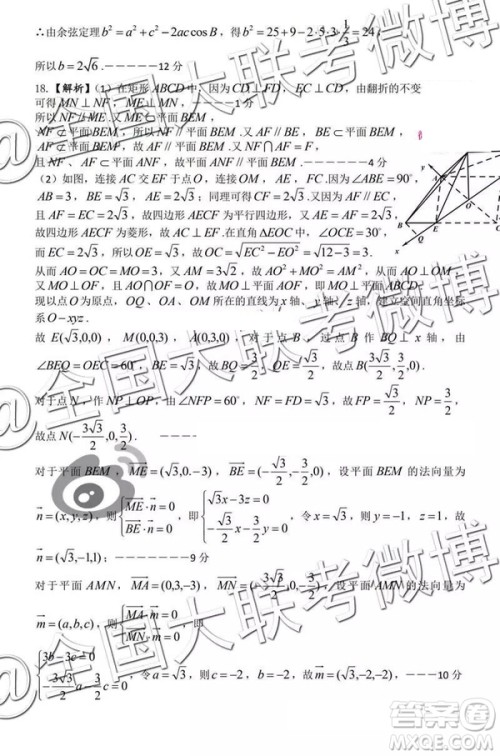 ∴由余弦定理b²=a²+c²−2ac cosB，得b²=25+9−2·5·3·1/3=24，
所以b=2√6．−−−−−12分
18.【解析】（1）在矩形ABCD中，因为CD⊥FD，EC⊥CD，由翻折的不变
可得MN⊥NF，ME⊥MN，−−−−−1分
所以NF∥ME．又ME⊂平面BEM，
NF⊄平面BEM，所以NF∥平面BEM．又AF∥BE，BE⊂平面BEM，
AF⊄平面BEM，所以AF∥平面BEM．又AF∩NF=F，
且NF、AF⊂平面ANF，故平面ANF∥平面BEM．−−−−−4分
（2）如图，连接AC交EF于点O，连接OM，AE，FC．因为∠ABE=90°，
AB=3，BE=√3，故AE=2√3；同理可得CF=2√3．又因为AF∥EC，且
AF=EC=2√3，故四边形AECF为平行四边形，又AE=EC=2√3，
故四边形AECF为菱形，故AC⊥EF．在直角△EOC中，∠OCE=30°，
而EC=2√3，所以OE=√3，故OC=√(EC²−EO²)=√(12−3)=3．
从而AO=OC=MO=3，又AM=3√2，故AO²+MO²=AM²，从而AO⊥OM，
又MO⊥OF，且AO∩OF=O．故MO⊥平面ABCD．
现以点O为原点，OQ、OA、OM所在的直线为x轴、y轴、z轴，建立空间直角坐标
系O−xyz．
故E(√3,0,0)，M(0,0,3)，A(0,3,0)，对于点B，过点B作BQ⊥x轴，由
∠BEQ=∠OEC=60°，BE=√3，故BQ=3/2，QE=√3/2，故B(3√3/2,3/2,0)．
对于点N，作NP⊥OP，由∠NFP=60°，NF=√3，故FP=√3/2，NP=3/2，
故点N(−3√3/2,0,3/2)．−−−−
对于平面BEM，ME=(√3,0,−3)，BE=(−√3/2,−3/2,0)，设平面BEM的法向量为
n=(x,y,z)，则{ME·n=0 BE·n=0，即{√3x−3z=0 −√3/2x−3/2y=0，令x=√3，则y=−1，z=1，故
n=(√3,−1,1)；−−−−−−9分
对于平面AMN，MA=(0,3,−3)，MN=(−3√3/2,0,−3/2)，设平面AMN的法向量为
m=(a,b,c)，则{MA·m=0 MN·m=0，即
{3b−3c=0 −3√3/2a−3/2c=0，令a=√3，则c=−2，b=−2，故m=(√3,−2,−2)，−−−−10分
B
Q
E
O
@全国大联考微博
@全国大联考微博
@全国大联考微博
答案圈
MXQE.COM